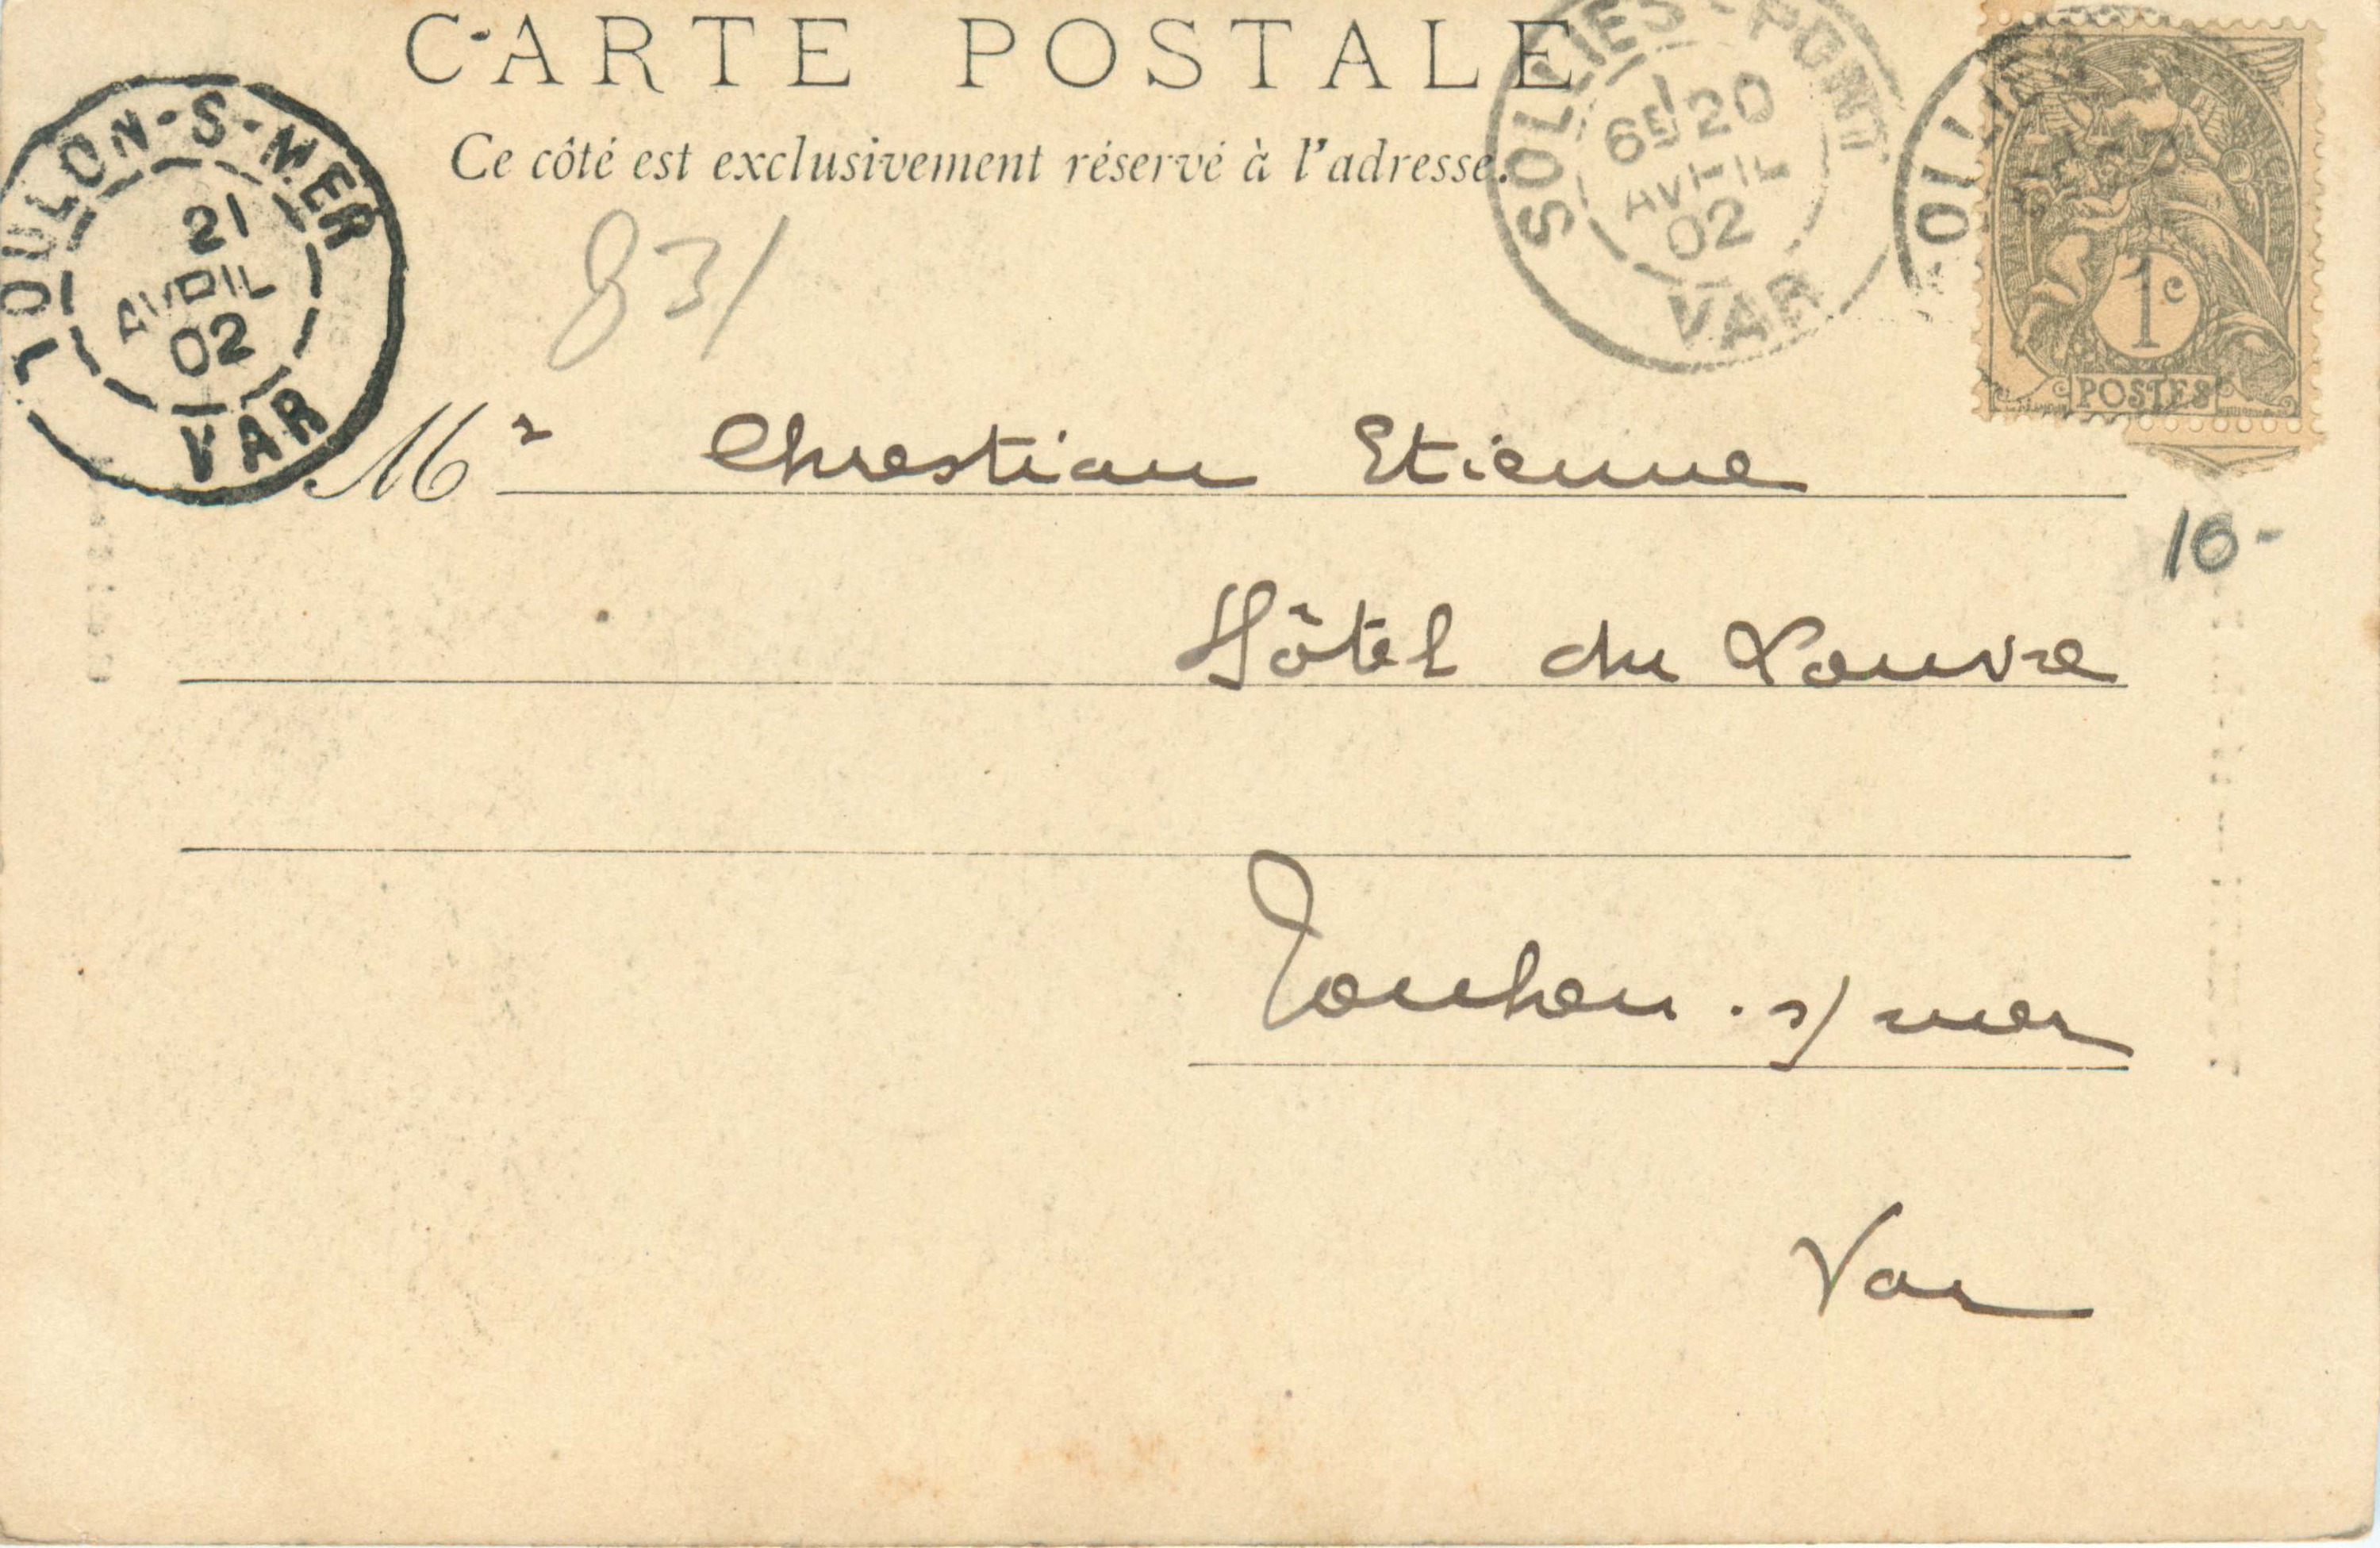 CARTE POSTALE
Ce côté est exclusivement réservé à l'adresse.
TOULON-S-MER
21
AVRIL
02
VAR
SOLLIES-PONT
6E 20
AVRIL
02
VAR
1c
POSTES
83/
Mr Chrestian Etienne
10-
Hôtel du Louvre
Toulon.s/mer
Var